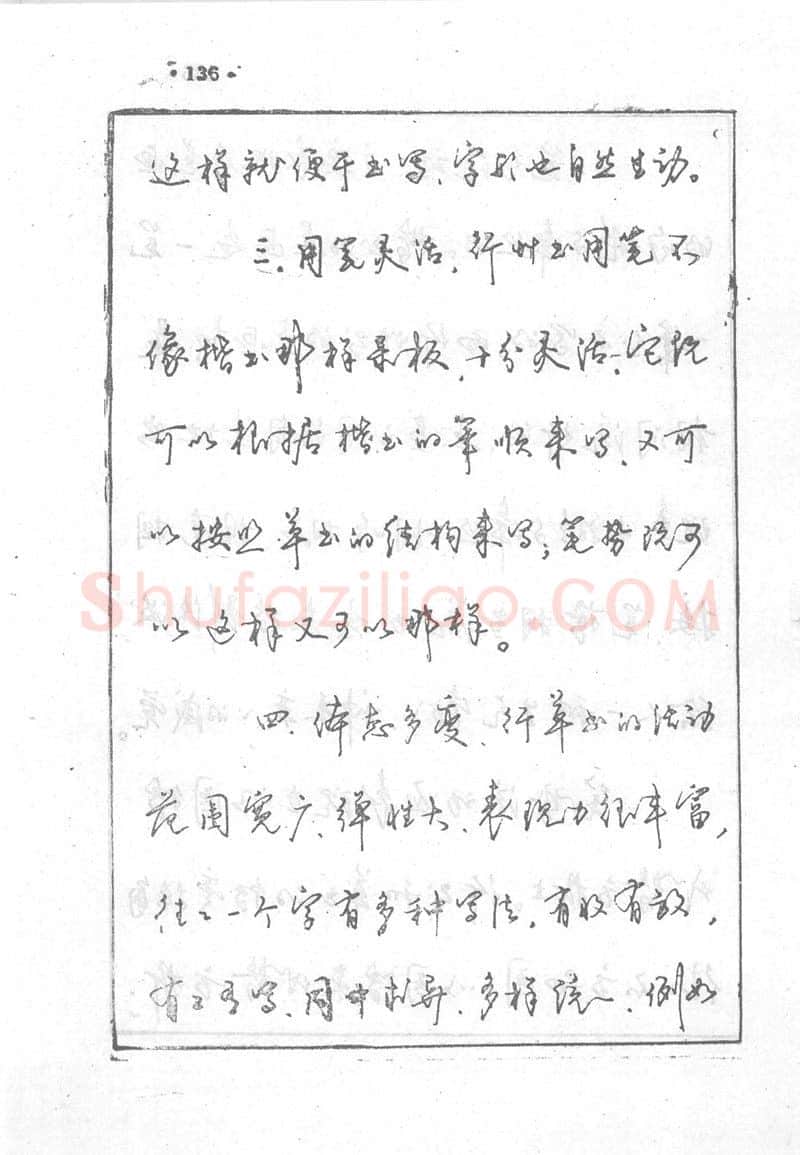 ·136·
这样就便于书写、字形也自然生动。
三、用笔灵活,行草书用笔不
像楷书那样呆板,十分灵活,它既
可以根据楷书的笔顺来写、又可
以按照草书的结构来写;笔势既可
以这样又可以那样。
四、体态多变、行草书的活动
范围宽广、弹性大、表现力很丰富,
往往一个字有多种写法,有收有放,
有工有写、同中求异、多样统一、例如
Shufaziliao.COM